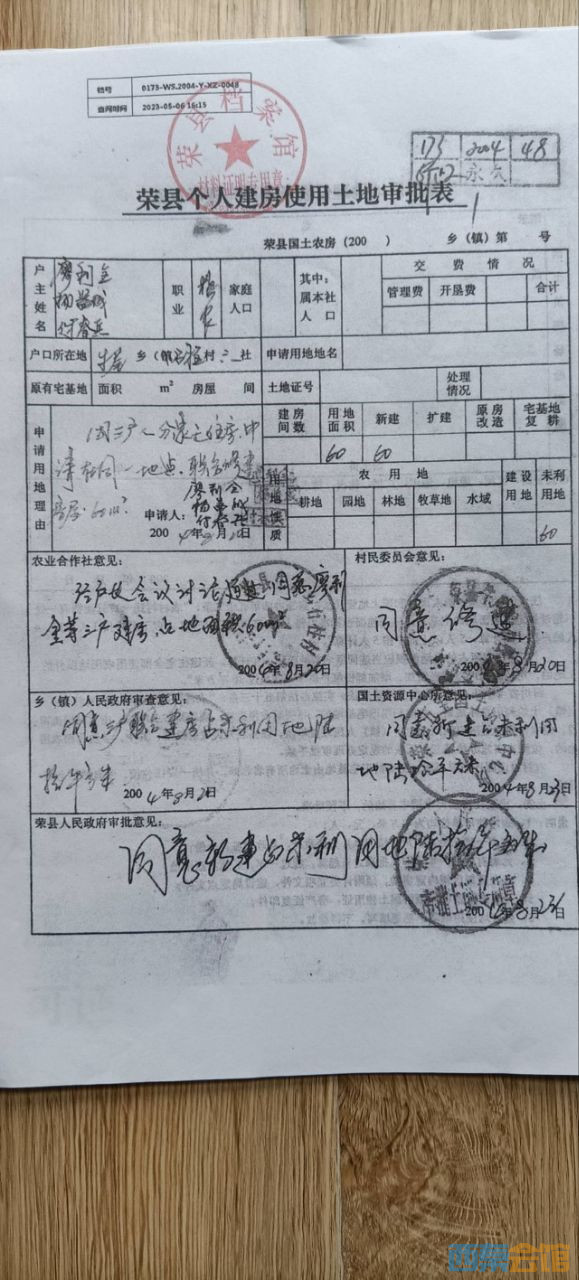 档号 0173-WS.2004-Y-XZ-0048
查阅时间 2023-05-06 16:15
荣县档案馆
材料证明专用章
173 2004 48
永久
荣县个人建房使用土地审批表
荣县国土农房(200 ) 乡(镇)第 号
户主姓名 廖利全 职业 家庭人口 其中:属本社人口 交费情况
管理费 开垦费 合计
户口所在地 乡(镇) 村 社 申请用地地名
原有宅基地 面积 m² 房屋 间 土地证号 处理情况
申请用地理由
建房间数 用地面积 新建 扩建 原房改造 宅基地复耕
60 60
因三户人分家无住房.申
请在同一地点.联合修建
住房.60m²
用地性质 农用地 建设用地 未利用地
耕地 园地 林地 牧草地 水域
60
申请人: 廖利全
2004年8月20日
农业合作社意见: 村民委员会意见:
经户代会议讨论通过同意廖利
全等三户建房占地面积60m²
2004年8月20日
同意修建.
2004年8月20日
乡(镇)人民政府审查意见: 国土资源中心所意见:
同意三户联合建房占未利用地陆
拾平方米 2004年8月21日
同意新建占未利用
地陆拾平方米
2004年8月23日
荣县人民政府审批意见:
同意新建占未利用地陆拾平方米
2004年8月23日
西祠会馆